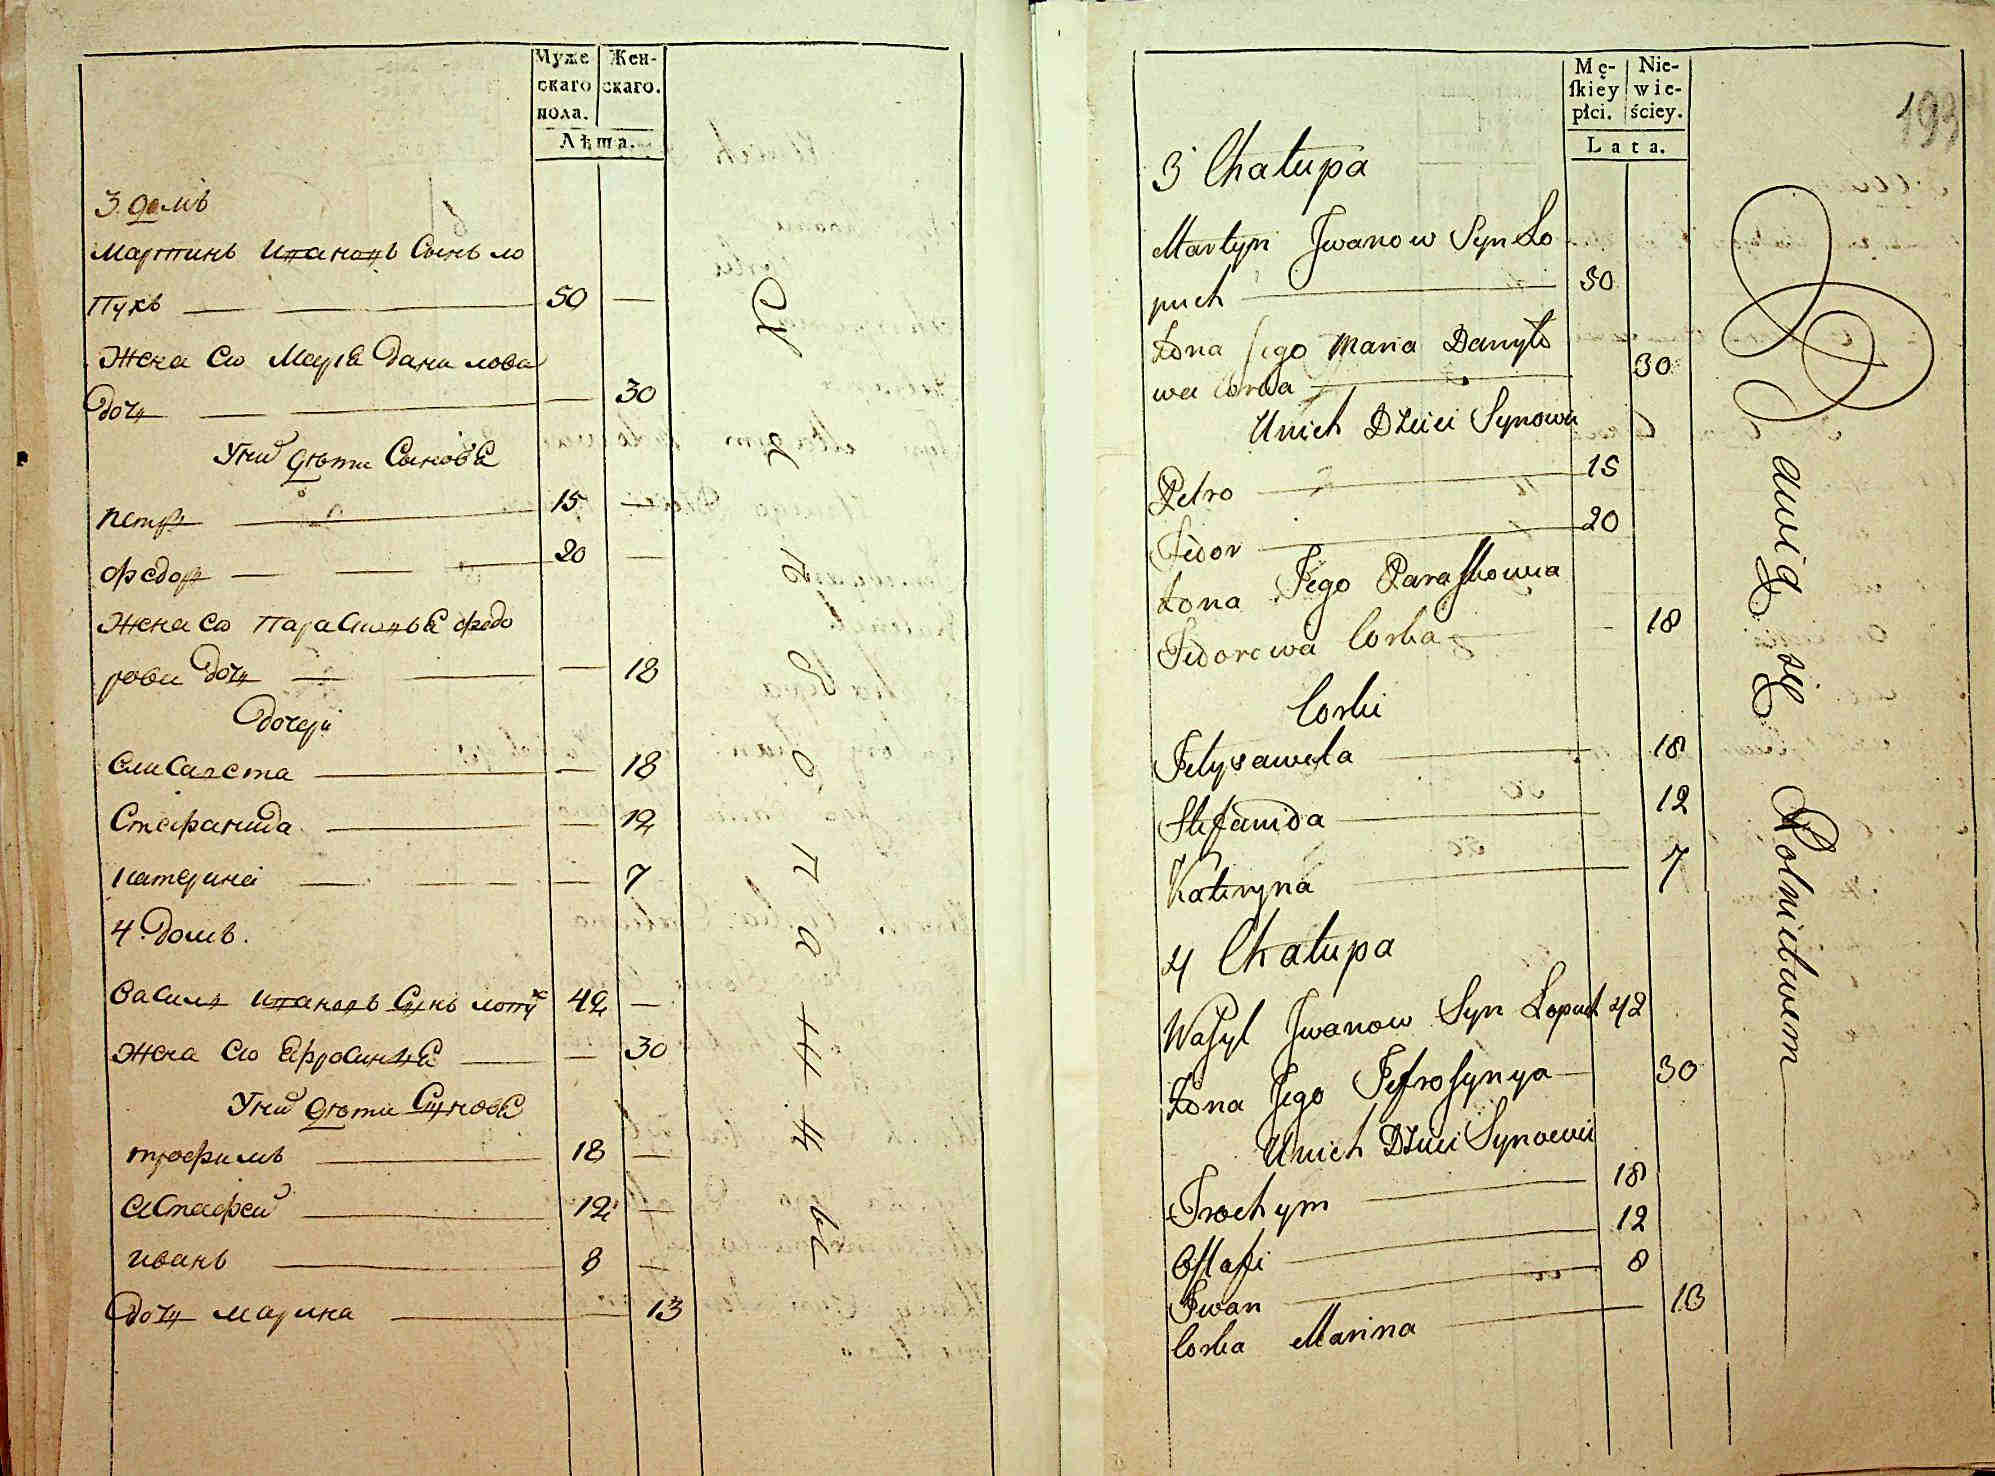 Муже
скаго
пола.
Жен-
скаго.
Лѣта.
3 домъ
Мартинъ Ивановъ Сынъ ло
пухъ 50
Жена его Маріа Данилова
Дочь 30
У них дѣти Синовѣа
Петръ 15
Федоръ 20
Жена его Парасковѣа Федо
рова Дочь 18
Дочери
Елисавета 18
Стефанида 12
Катерина 7
4 Домъ.
Василь Ивановъ Сынъ лопух 42
Жена его Ефросинѣа 30
У них дѣти Сыновѣа
трофимъ 18
Астафей 12
иванъ 8
Дочь марина 13
193
Mę-
skiey
płci.
Nie-
wie-
ściey.
Lata.
3 Chałupa
Martyn Jwanow Syn Ło
puch 50
Żona Jego Maria Danyło
wa Corka 30
U nich Dzieci Synowie
Petro 15
Fedor 20
Żona Jego Paraskowia
Fedorowa Corka 18
Corki
Jelysaweta 18
Stefanida 12
Kateryna 7
4 Chałupa
Wasyl Jwanow Syn Łopuch 42
Żona Jego Jefrosynya 30
U nich Dzieci Synowie
Trochym 18
Ostafi 12
Jwan 8
Corka Marina 13
Bawią się Rolnictwem